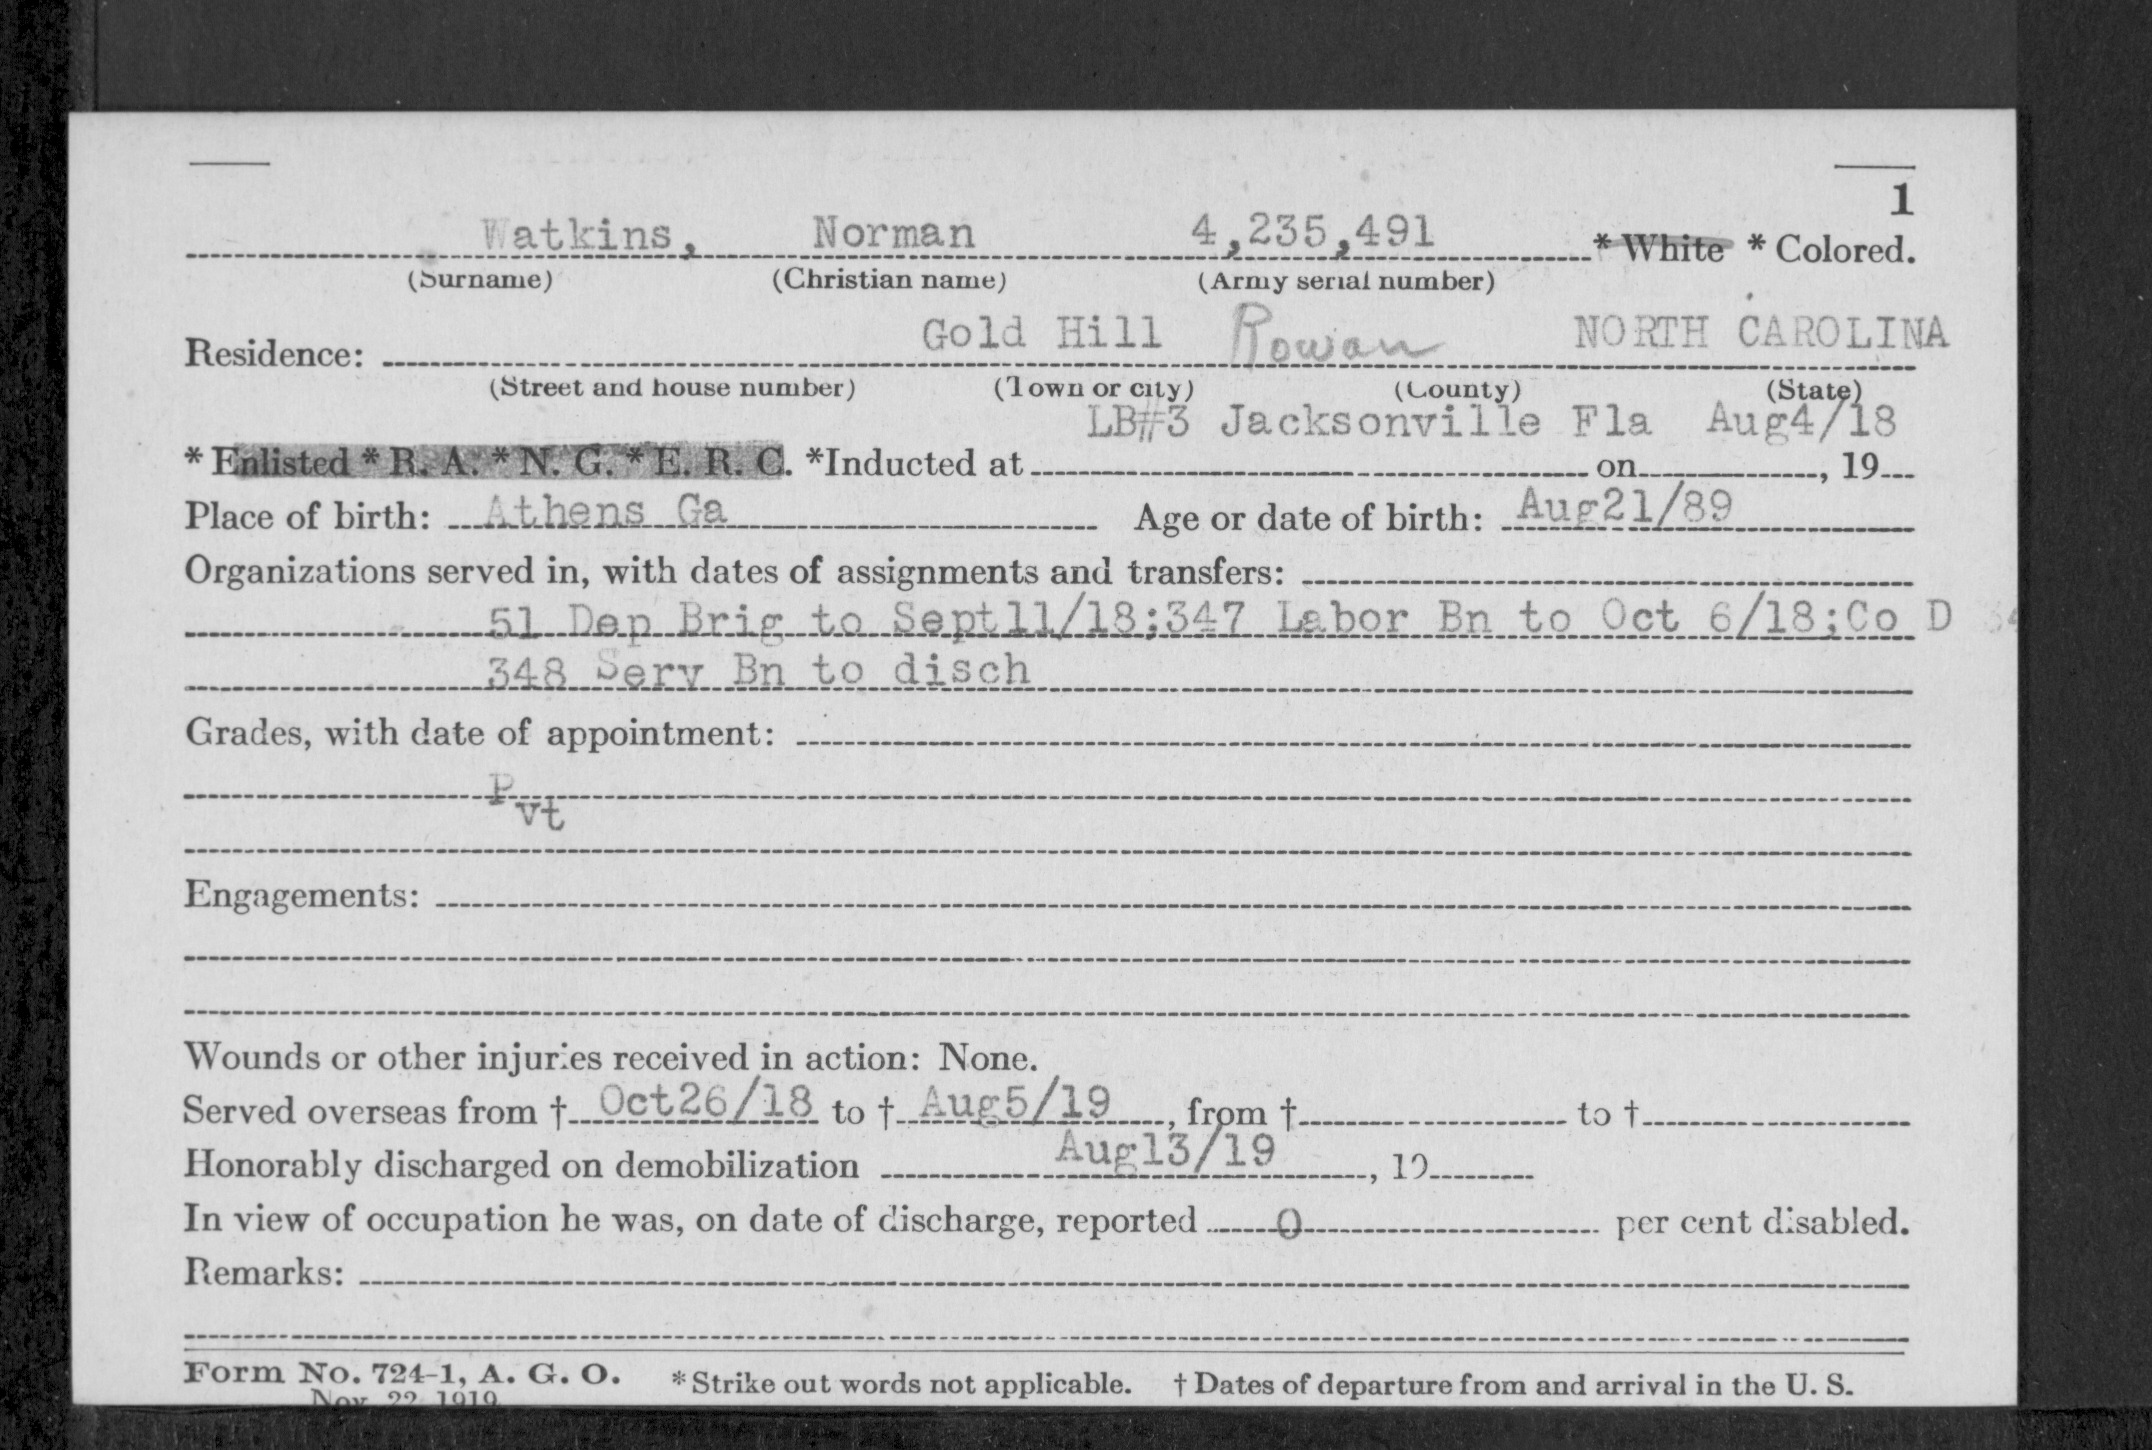 1
Watkins, Norman 4,235,491 * White * Colored.
(Surname) (Christian name) (Army serial number)
Residence: Gold Hill Rowan NORTH CAROLINA
(Street and house number) (Town or city) (County) (State)
LB#3 Jacksonville Fla Aug4/18
* Enlisted * R. A. * N. G. * E. R. C. *Inducted at on , 19
Place of birth: Athens Ga Age or date of birth: Aug21/89
Organizations served in, with dates of assignments and transfers:
51 Dep Brig to Sept11/18;347 Labor Bn to Oct 6/18;Co D 34
348 Serv Bn to disch
Grades, with date of appointment:
Pvt
Engagements:
Wounds or other injuries received in action: None.
Served overseas from † Oct26/18 to † Aug5/19, from † to †
Honorably discharged on demobilization Aug13/19, 19
In view of occupation he was, on date of discharge, reported 0 per cent disabled.
Remarks:
Form No. 724-1, A. G. O. * Strike out words not applicable. † Dates of departure from and arrival in the U. S.
Nov. 22, 1919